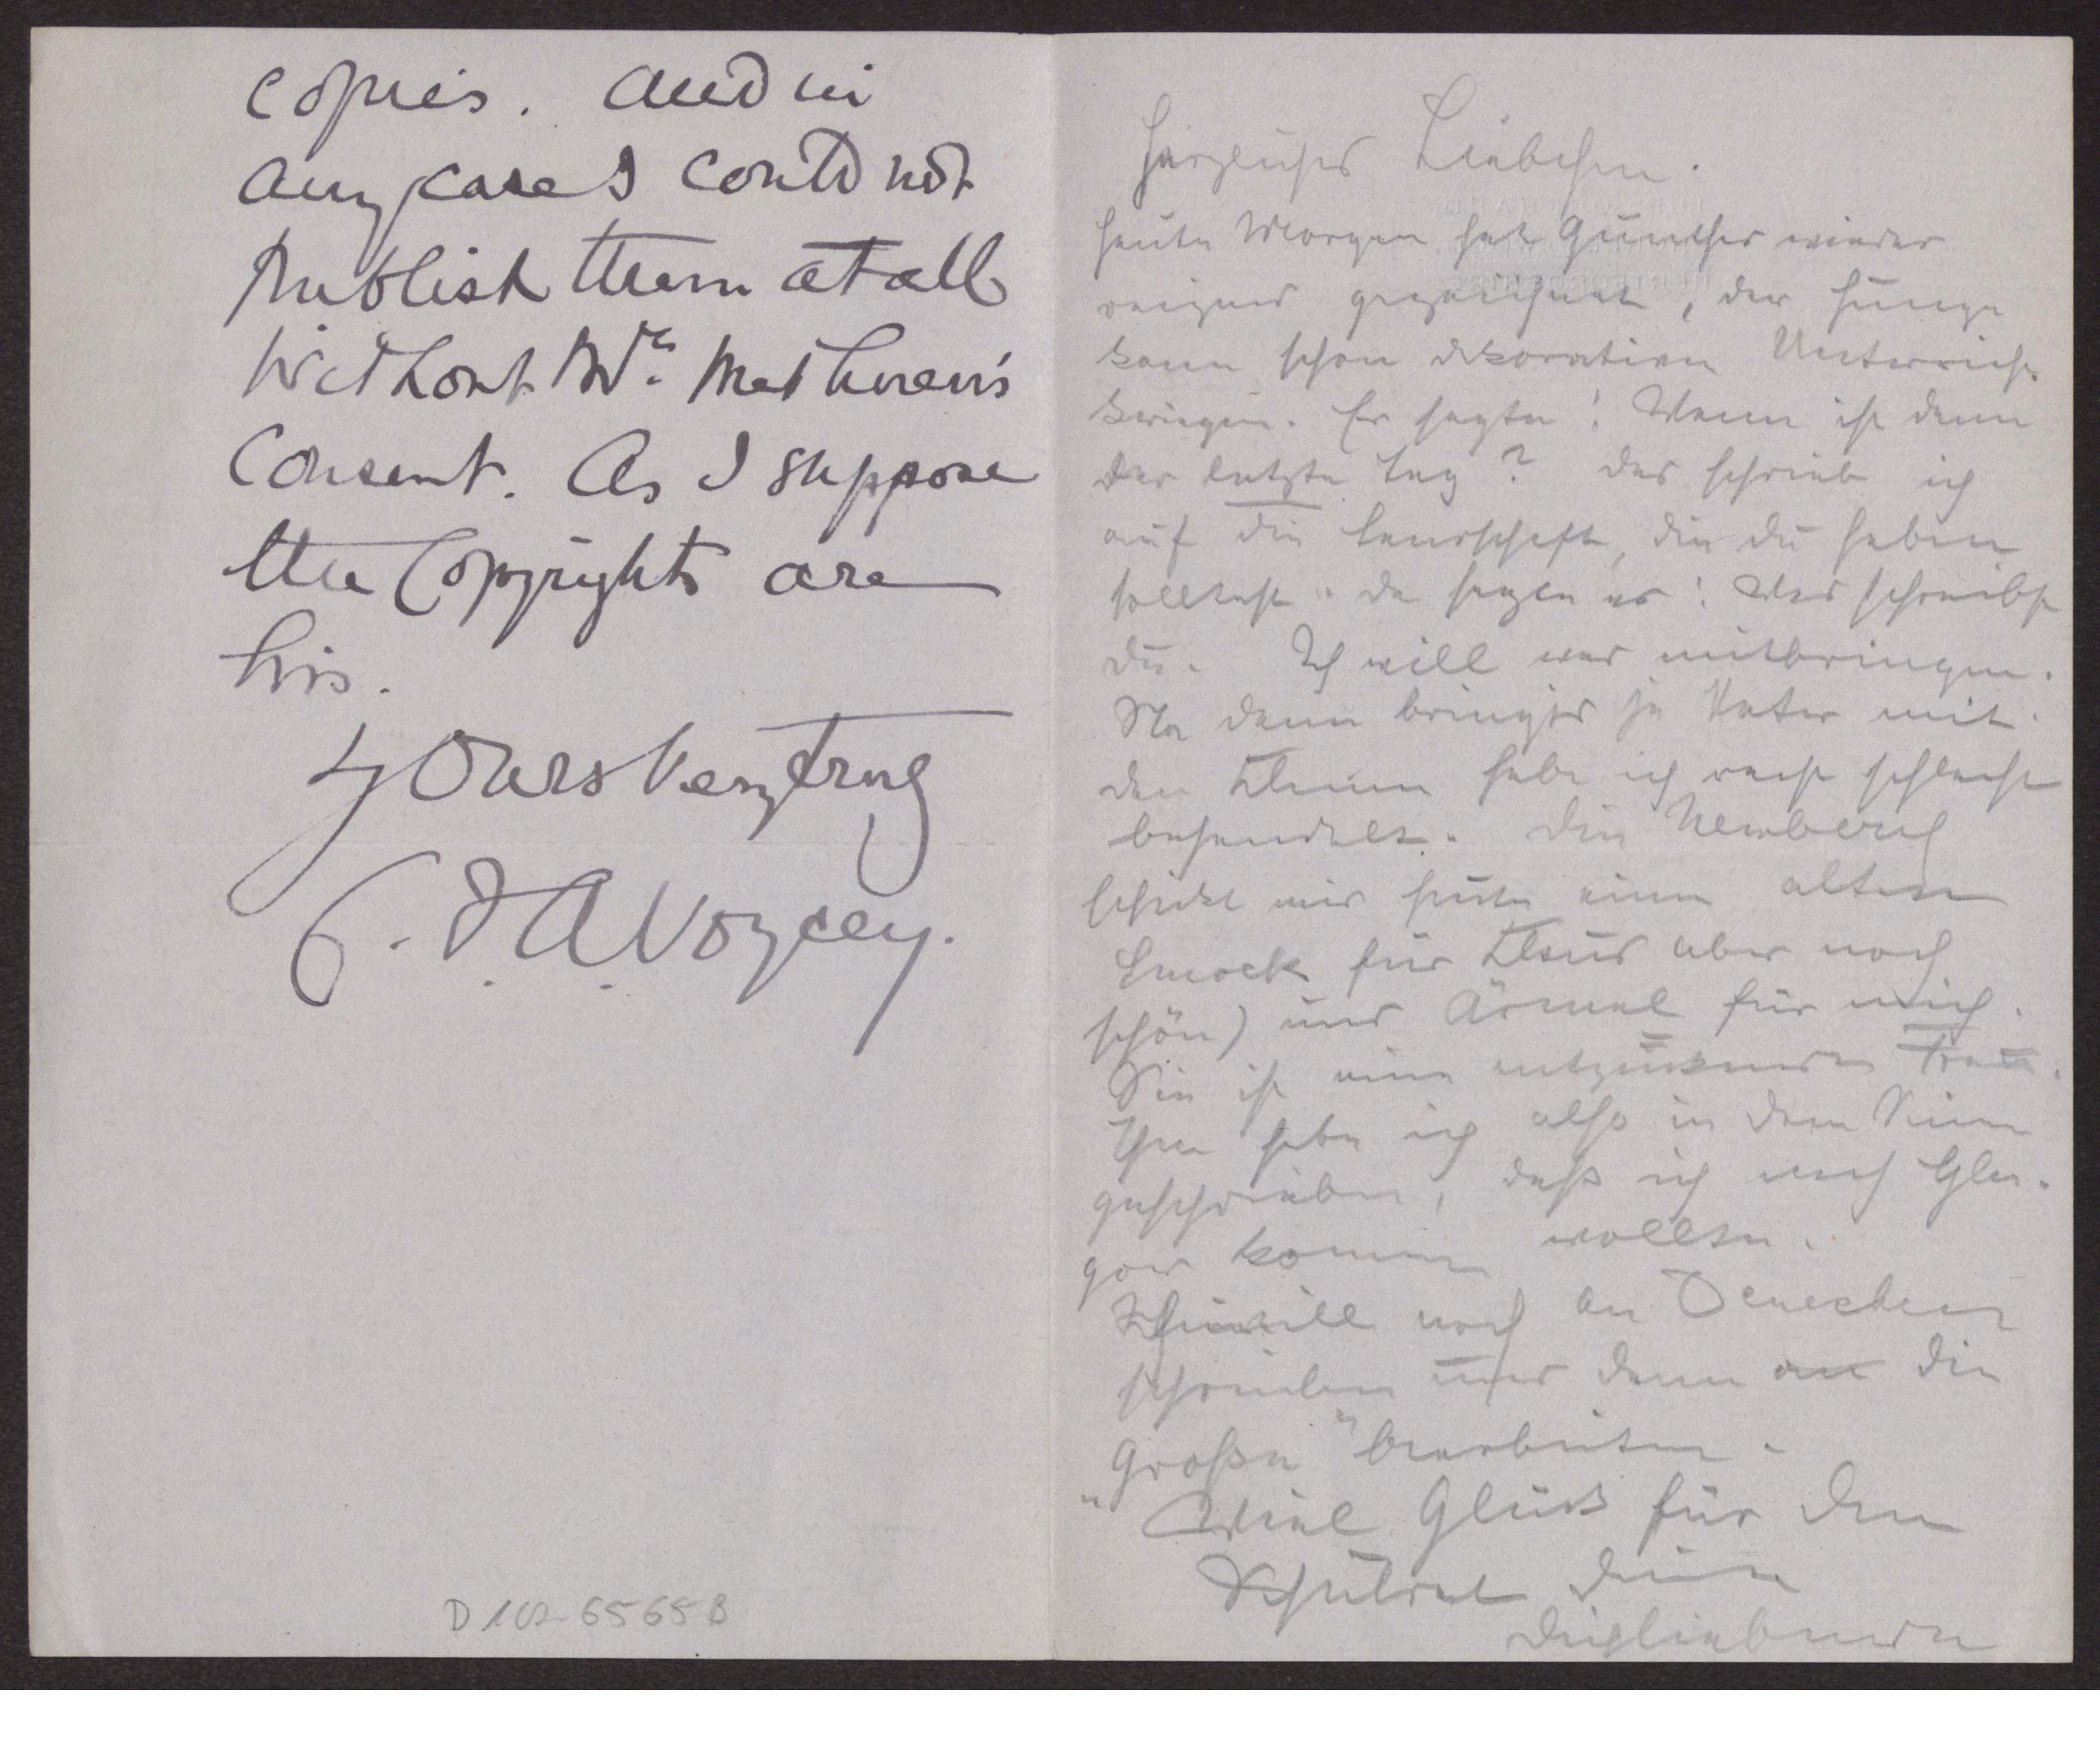 copies. And in
any case I could not
publish them at all
without Mr. Methuen's
consent. As I suppose
the Copyrights are
his.
Yours very truly
C. F. A. Voysey.
D 102-6565 B
Herzliches Liebchen.
heute Morgen hat Günther wieder
reizend gezeichnet, der Junge
kann schon dekorativen Unterricht
kriegen. Er sagte: Wann ist denn
der letzte Tag? das schrieb ich
auf die Landschaft, die du haben
solltest. da sagte er: Was schreibst
du. Ich will was mitbringen.
Na dann bringts ja Vater mit.
den habe ich recht schlecht
behandelt. Die Newbery
schickt mir heute einen alten
Smock für Klaus aber noch
schön) und Ärmel für mich.
Sie ist eine entzückende Frau.
Ihr habe ich also in dem Sinn
geschrieben, daß ich nach Glas-
gow kommen wollte.
will noch an
schreiben und dann an die
Große
Viel Glück für den
Schulrat deine
dichliebende